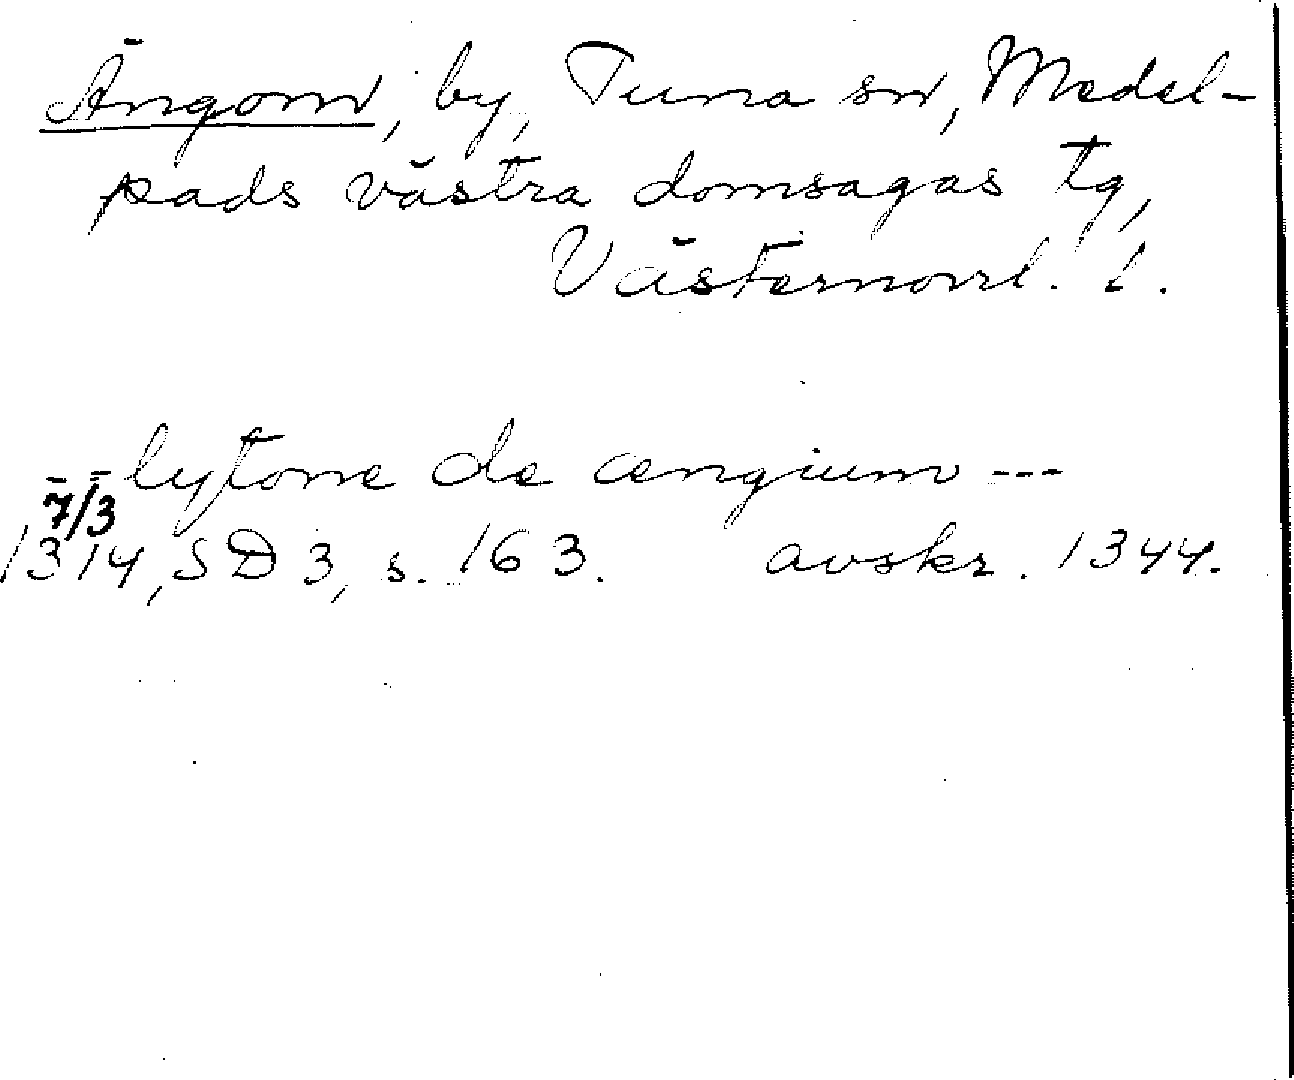 Ängom, by, Tuna sn, Medel-
pads västra domsagas tg,
Västernorrl. l.
lytone de ængium ---
7/3
1314, SD 3, s. 163. avskr. 1344.